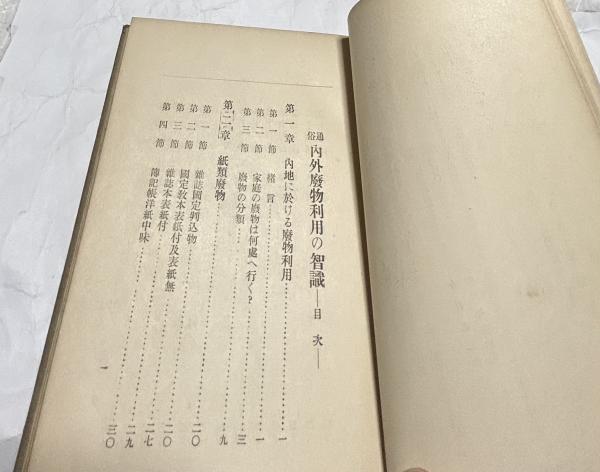 通俗 内外廢物利用の智識─目次─
第一章 內地に於ける廢物利用……一
第一節 緖言……一
第二節 家庭の廢物は何處へ行く?……一
第三節 廢物の分類……三
第二章 紙類廢物……九
第一節 雜誌國定判込物……二〇
第二節 國定敎本表紙付及表紙無……二〇
第三節 雜誌本表紙付……二七
第四節 簿記帳洋紙中味……二九
三〇
一